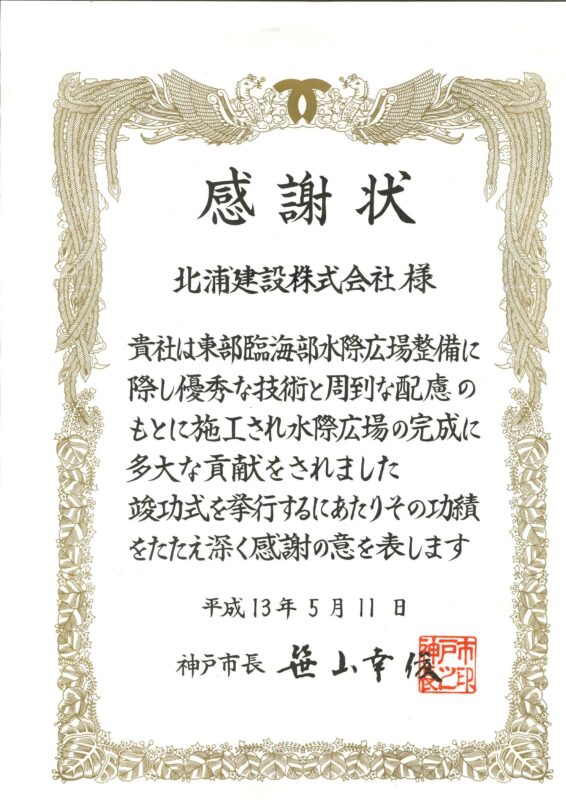 感謝状
北浦建設株式会社様
貴社は東部臨海部水際広場整備に
際し優秀な技術と周到な配慮の
もとに施工され水際広場の完成に
多大な貢献をされました
竣功式を挙行するにあたりその功績
をたたえ深く感謝の意を表します
平成13年5月11日
神戸市長 笹山幸俊
神戸市長之印